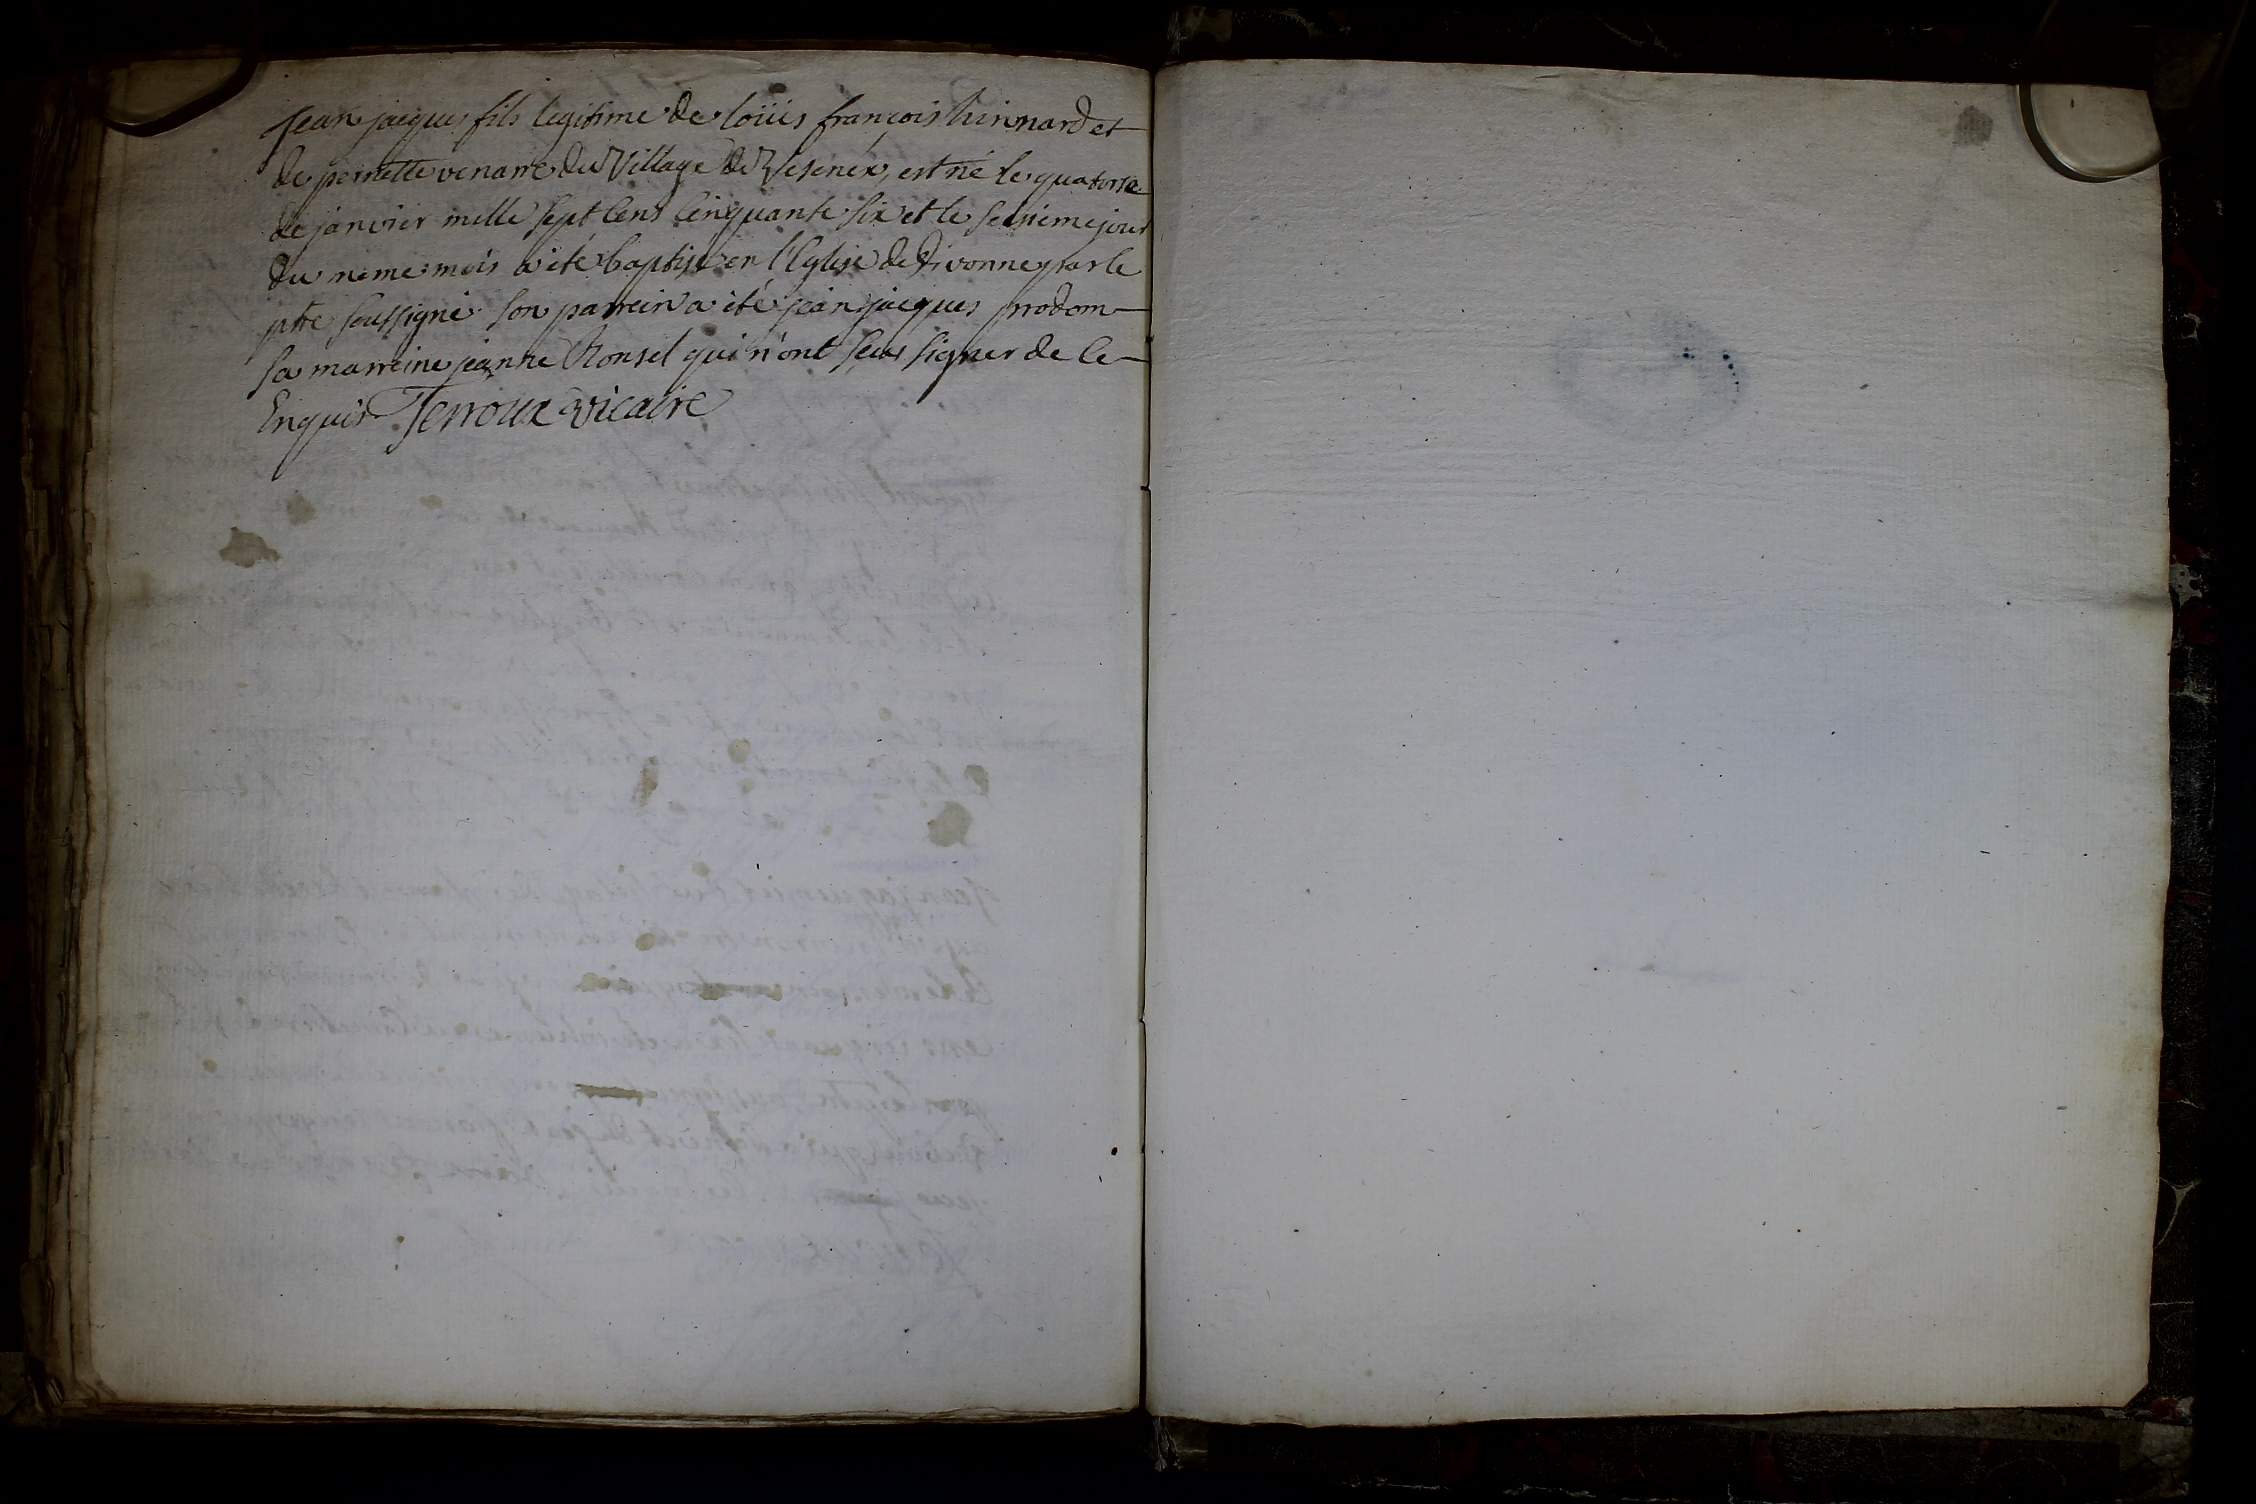 Jean jacques fils legitime de loüis françois hinnard et
de pernette venarre du Village de Vesenex, est né le quatorse
de janvier mille sept cens cinquante six et le sesieme jour
du meme mois a été baptisé en l'Eglise de Divonne par le
ptre soussigné son parrein a été jean jacques prodom
sa marreine jeanne Ronsel qui n'ont seus signer de ce
Enquis Terroux vicaire